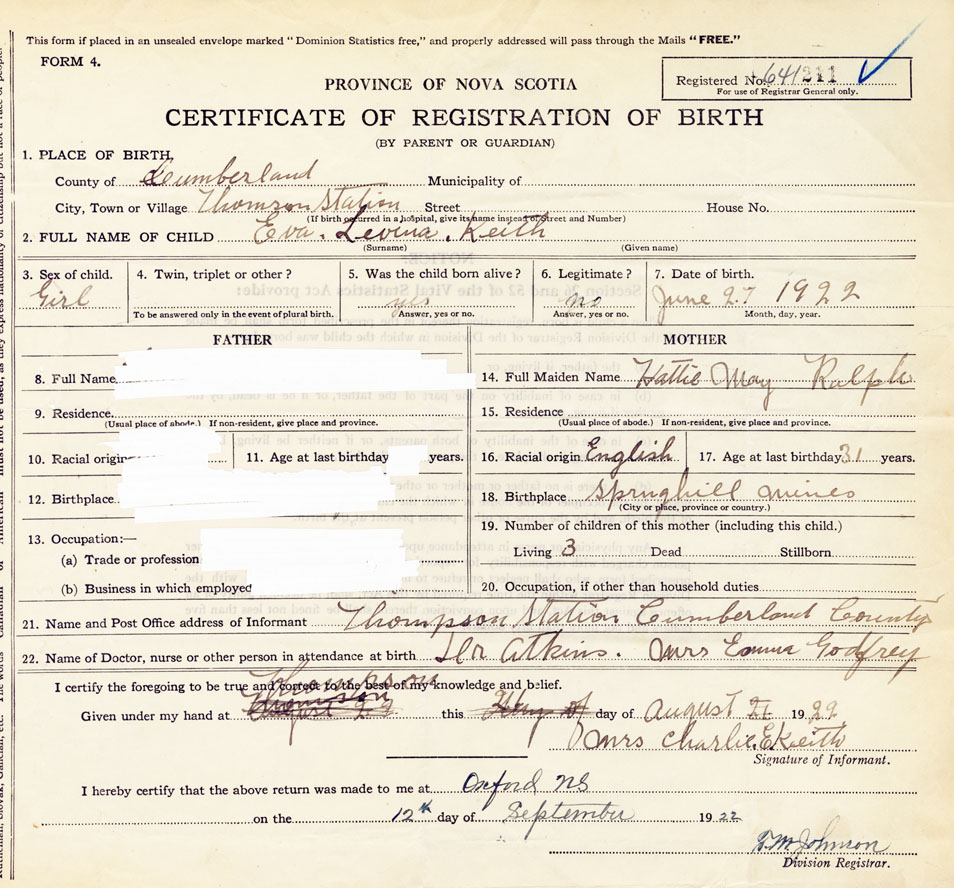 This form if placed in an unsealed envelope marked "Dominion Statistics free," and properly addressed will pass through the Mails "FREE."
FORM 4.
Registered No. 641211
For use of Registrar General only.
PROVINCE OF NOVA SCOTIA
CERTIFICATE OF REGISTRATION OF BIRTH
(BY PARENT OR GUARDIAN)
1. PLACE OF BIRTH,
County of Cumberland Municipality of
City, Town or Village Thomson Station Street House No.
(If birth occurred in a hospital, give its name instead of street and Number)
2. FULL NAME OF CHILD Eva. Levina. Keith
(Surname) (Given name)
3. Sex of child. 4. Twin, triplet or other? 5. Was the child born alive? 6. Legitimate? 7. Date of birth.
Girl yes no June 27 1922
To be answered only in the event of plural birth. Answer, yes or no. Answer, yes or no. Month, day, year.
FATHER MOTHER
8. Full Name 14. Full Maiden Name Hattie May Ralph
9. Residence 15. Residence
(Usual place of abode.) If non-resident, give place and province. (Usual place of abode.) If non-resident, give place and province.
10. Racial origin 11. Age at last birthday years. 16. Racial origin English 17. Age at last birthday 31 years.
12. Birthplace 18. Birthplace Springhill mines
(City or place, province or country.)
13. Occupation:— 19. Number of children of this mother (including this child.)
(a) Trade or profession Living 3 Dead Stillborn
(b) Business in which employed 20. Occupation, if other than household duties
21. Name and Post Office address of Informant Thompson Station Cumberland County
22. Name of Doctor, nurse or other person in attendance at birth Dr Atkins. Mrs Emma Godfrey
I certify the foregoing to be true and correct to the best of my knowledge and belief.
Thompson
Given under my hand at this day of August 21 1922
Mrs Charlie. E Keith
Signature of Informant.
I hereby certify that the above return was made to me at Oxford NS
on the 12th day of September 1922
Johnson
Division Registrar.